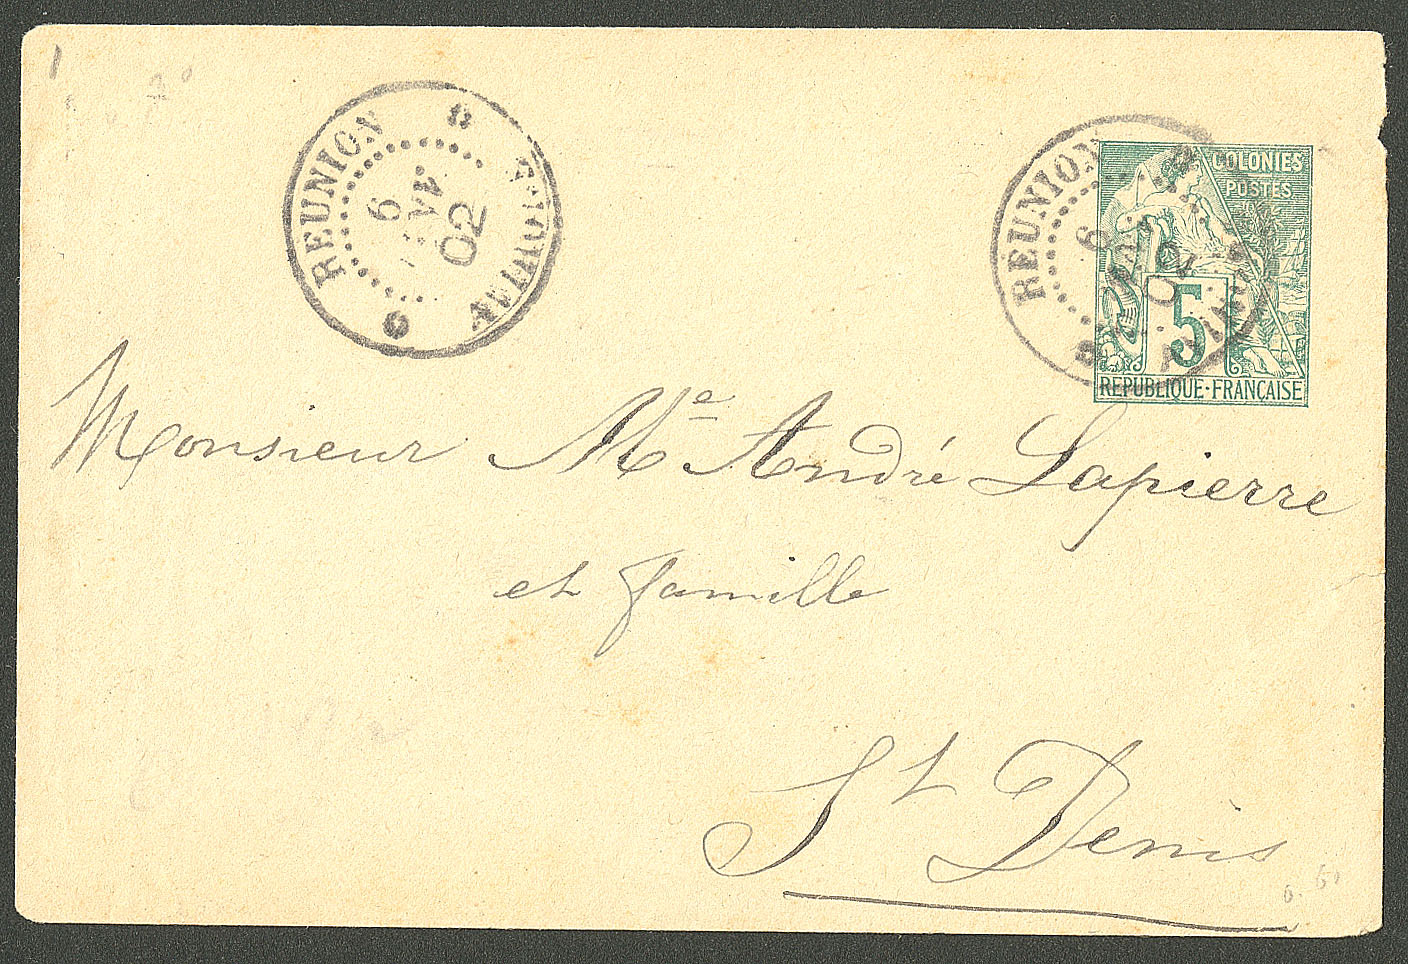 REUNION
6
02
REUNION
6
COLONIES
POSTES
5
REPUBLIQUE·FRANÇAISE
Monsieur Me André Lapierre
et famille
St Denis